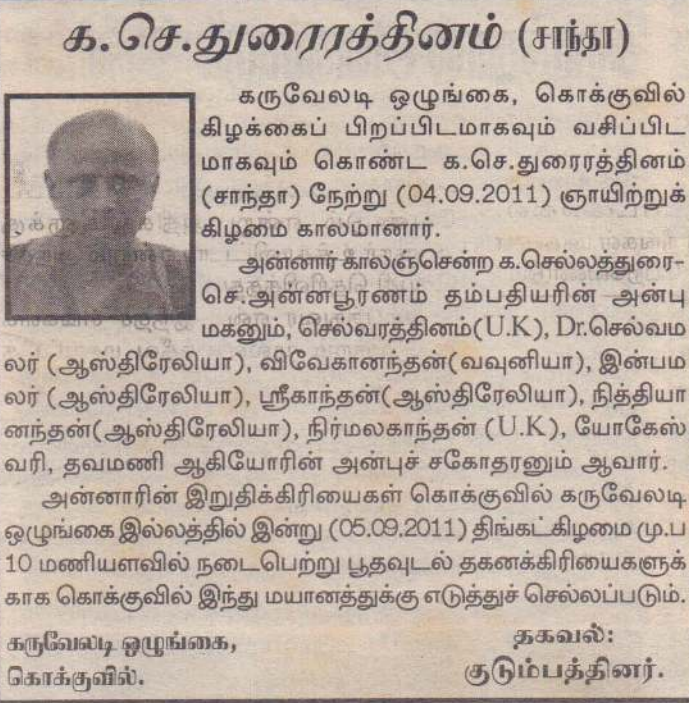 க.செ.துரைரத்தினம் (சாந்தா)
கருவேலடி ஒழுங்கை, கொக்குவில்
கிழக்கைப் பிறப்பிடமாகவும் வசிப்பிட
மாகவும் கொண்ட க.செ.துரைரத்தினம்
(சாந்தா) நேற்று (04.09.2011) ஞாயிற்றுக்
கிழமை காலமானார்.
அன்னார் காலஞ்சென்ற க.செல்லத்துரை-
செ.அன்னபூரணம் தம்பதியரின் அன்பு
மகனும், செல்வரத்தினம்(U.K), Dr.செல்வம
லர் (ஆஸ்திரேலியா), விவேகானந்தன்(வவுனியா), இன்பம
லர் (ஆஸ்திரேலியா), ஸ்ரீகாந்தன்(ஆஸ்திரேலியா), நித்தியா
னந்தன்(ஆஸ்திரேலியா), நிர்மலகாந்தன் (U.K), யோகேஸ்
வரி, தவமணி ஆகியோரின் அன்புச் சகோதரனும் ஆவார்.
அன்னாரின் இறுதிக்கிரியைகள் கொக்குவில் கருவேலடி
ஒழுங்கை இல்லத்தில் இன்று (05.09.2011) திங்கட்கிழமை மு.ப
10 மணியளவில் நடைபெற்று பூதவுடல் தகனக்கிரியைகளுக்
காக கொக்குவில் இந்து மயானத்துக்கு எடுத்துச் செல்லப்படும்.
கருவேலடி ஒழுங்கை,
கொக்குவில்.
தகவல்:
குடும்பத்தினர்.